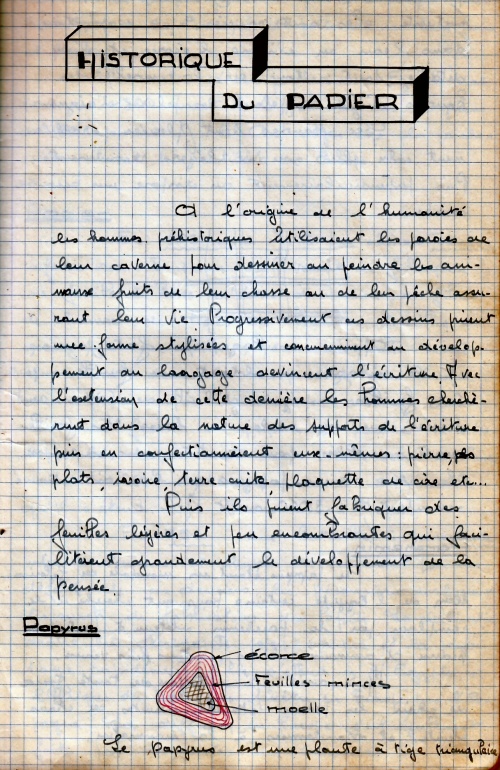 HISTORIQUE
DU PAPIER
A l'origine de l'humanité
les hommes préhistoriques utilisaient les parois de
leur caverne pour dessiner ou peindre les ani-
maux fruits de leur chasse ou de leur pêche assu-
rant leur vie. Progressivement ces dessins prirent
une forme stylisées et concurremment au dévelop-
pement du langage devinrent l'écriture. Avec
l'extension de cette dernière les hommes cherchè-
rent dans la nature des supports de l'écriture
puis en confectionnèrent eux-mêmes : pierre,
plats, ivoire, terre cuite, plaquette de cire etc...
Puis ils purent fabriquer des
feuilles légères et peu encombrantes qui faci-
litèrent grandement le développement de la
pensée.
Papyrus
écorce
Feuilles minces
moelle
Le papyrus est une plante à tige triangulaire